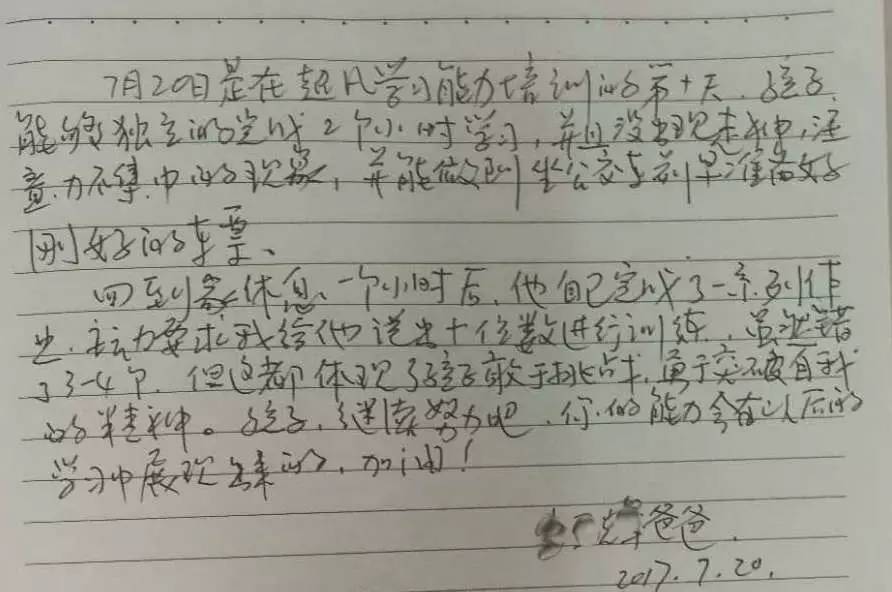 7月20日是在超凡学习能力培训的第十天.孩子
能够独立的完成2个小时学习,并且没出现走神,注
意力不集中的现象,并能做到坐公交车前早准备好
刚好的车票、
回到家休息一个小时后,他自己完成了一系列作
业.主动要求我给他说出十位数进行训练.虽然错
了3-4个.但这都体现了孩子敢于挑战,勇于突破自我
的精神。孩子,继续努力吧.你的能力会在以后的
学习中展现出来的.加油!
爸爸.
2017.7.20.